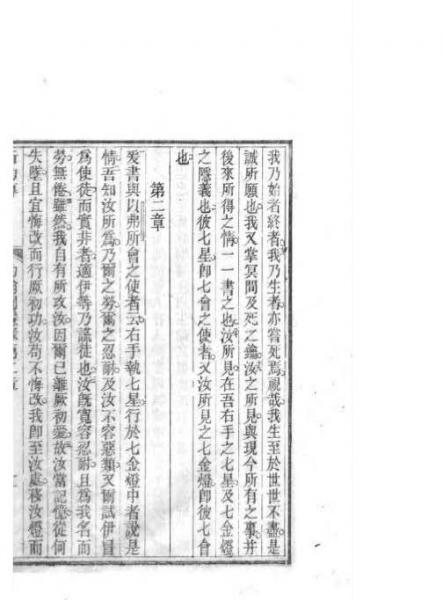 我乃始者終者我乃生者亦嘗死焉視哉我生至於世世不盡是
誠所願也我又掌冥間及死之鑰故汝所見與現今所有之事并
後來所得之情一一書之也汝所見在吾右手之七星及七金燈
之隱義也彼七星即七會之使者又汝所見之七金燈即彼七會
也
第二章
爰書與以弗所會之使者云右手執七星行於七金燈中者說是
情吾知汝所為乃爾之勞爾之忍耐及汝不容惡類又爾試伊曰
為使徒而實非者適伊等乃謊徒也汝既寬容忍耐且為我名而
勞無倦雖然我自有所攻汝因爾已離厥初愛故汝當記憶從何
失墜且宜悔改而行厥初功汝苟不悔改我即至汝處移汝燈而